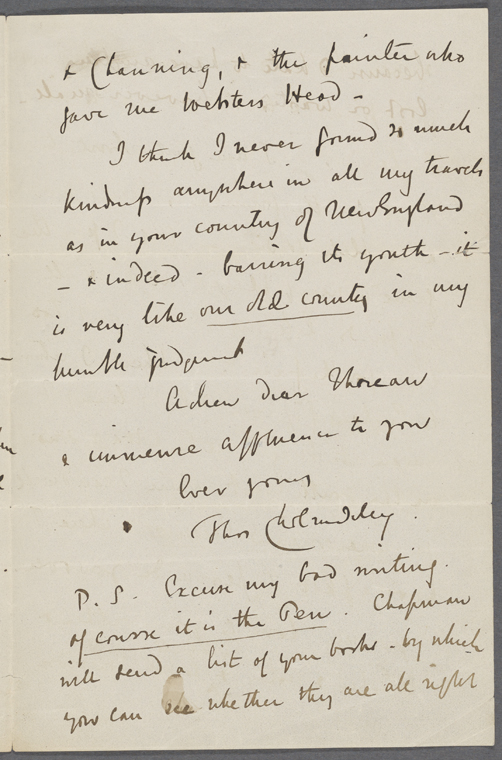 & Channing, & the painter who
gave me Websters Head -
I think I never found so much
kindness anywhere in all my travels
as in your country of New England
- & indeed - barring its youth - it
is very like our old country in my
humble judgment
Adieu dear Thoreau
& immense affluence to you
Ever yours
Thos Cholmdeley.
P. S. Excuse my bad writing.
of course it is the Pen. Chapman
will send a list of your books - by which
you can see whether they are all right